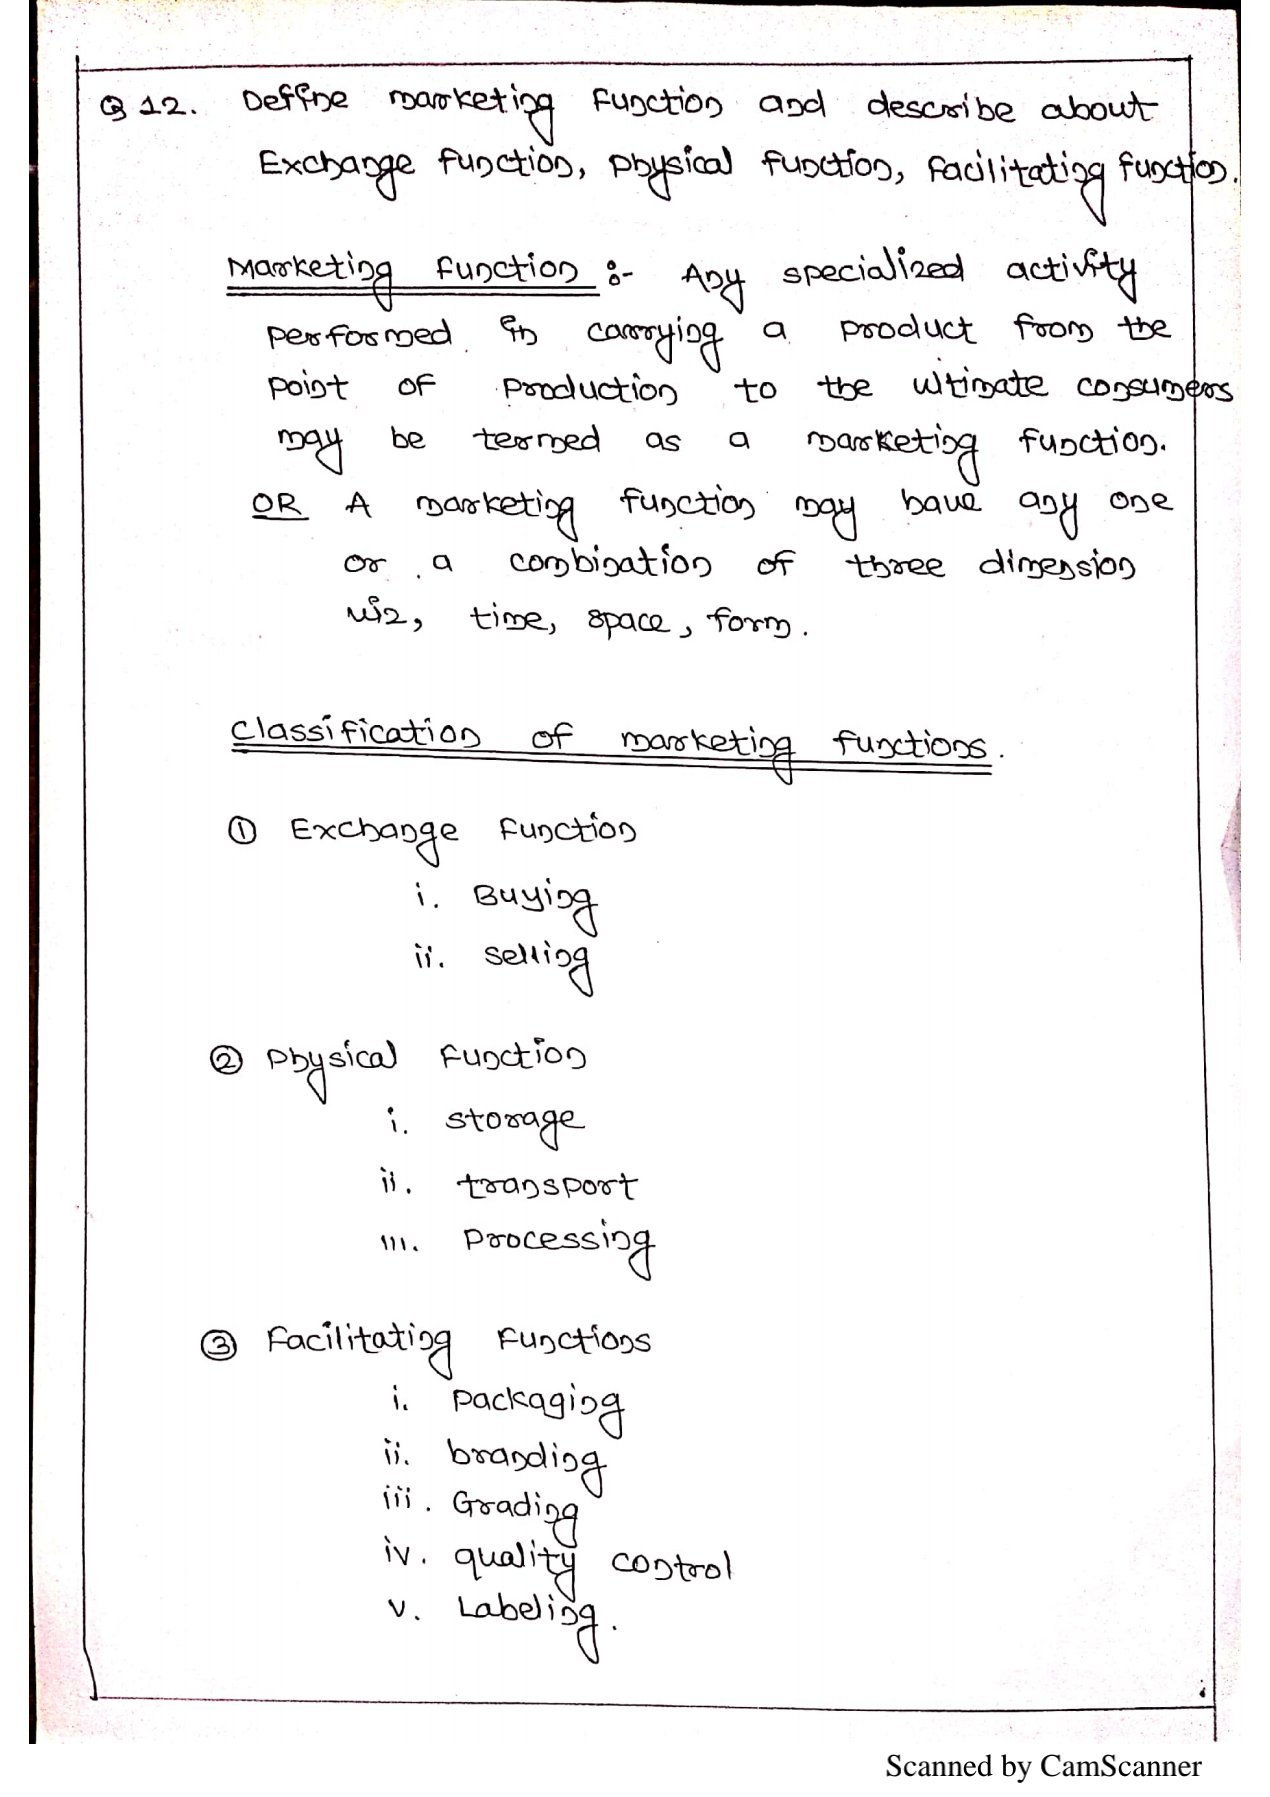 Q 12. Define marketing function and describe about
Exchange function, physical function, facilitating function.
Marketing function :- Any specialized activity
performed in carrying a product from the
point of production to the ultimate consumers
may be termed as a marketing function.
OR A marketing function may have any one
or a combination of three dimension
viz, time, space, form.
Classification of marketing functions.
① Exchange function
i. Buying
ii. selling
② Physical function
i. storage
ii. transport
iii. Processing
③ Facilitating Functions
i. packaging
ii. branding
iii. Grading
iv. quality control
v. Labeling.
Scanned by CamScanner